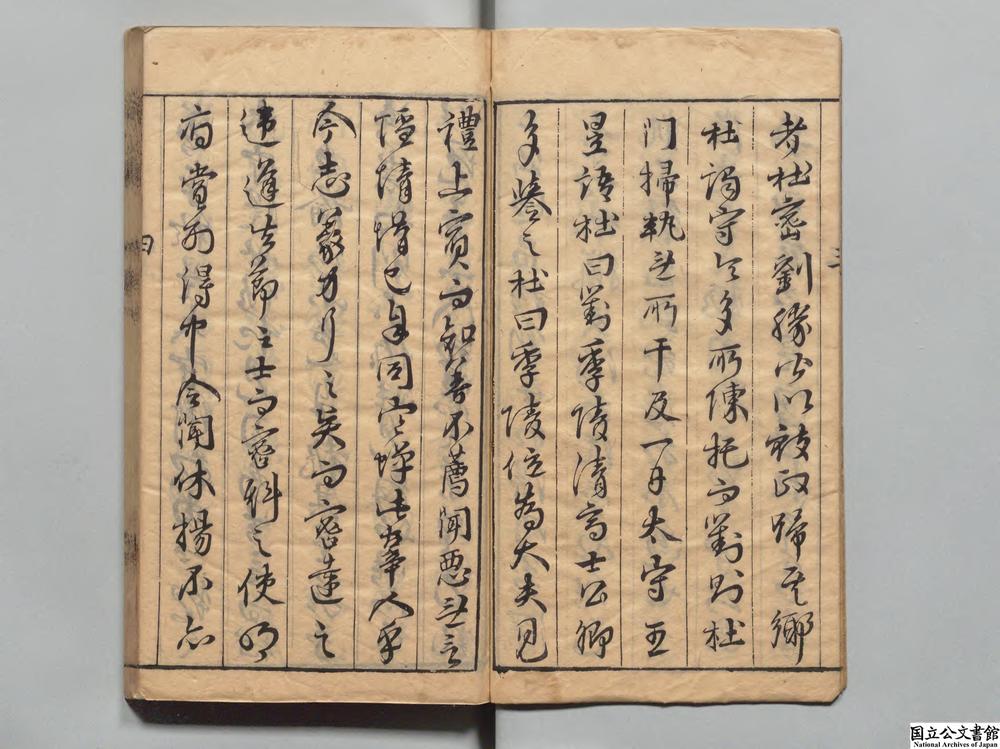 者杜密劉勝以致政歸其鄉
杜謁守令多所陳托而劉則杜
門掃軌無所干及一日太守王
昱語杜曰劉季陵清高士公卿
多舉之杜曰季陵位為大夫見
禮上賓而知善不薦聞惡無言
隱情惜己自同寒蟬此辠人乎
今志義力行之而密達之
違道失節之士而密糾之使明
府賞刑得中令聞休揚不亦
国立公文書館
National Archives of Japan